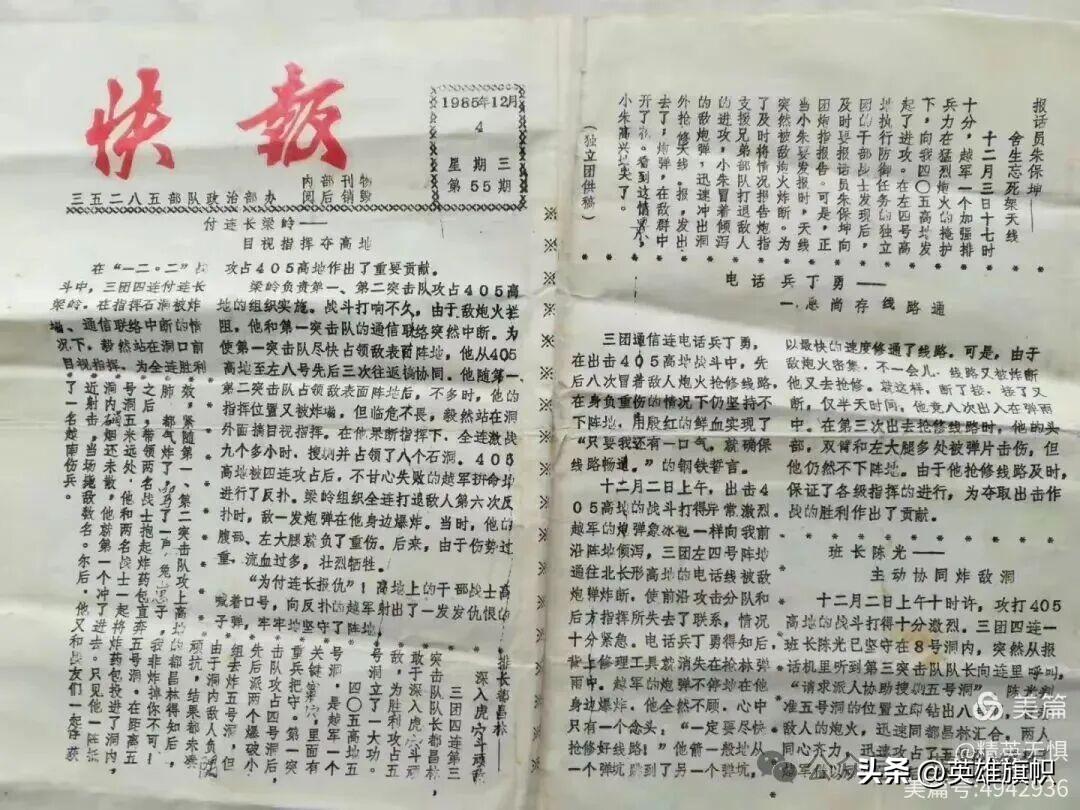 快报
三五二八五部队政治部办
内部刊物
阅后销毁
1985年12月
4
星期三
第55期
付连长梁岭——
目视指挥夺高地
在“一二。二”战
斗中，三团四连付连长
梁岭。在指挥石洞被炸
塌、通信联络中断的情
况下，毅然站在洞口前
目视指挥，为全连胜利
攻占405高地作出了重要贡献。
梁岭负责第一、第二突击队攻占405高
地的组织实施。战斗打响不久，由于敌炮火拦
阻，他和第一突击队的通信联络突然中断。为
使第一突击队尽快占领敌表面阵地，他从405
高地至左八号先后三次往返搞协同。他随第一、
第二突击队占领敌表面阵地后，不多时，他的
指挥位置又被炸塌，但临危不畏，毅然站在洞
外面搞目视指挥。在他果断指挥下，全连激战
九个多小时，搜剿并占领了八个石洞。405
高地被四连攻占后，不甘心失败的越军拼命地
进行了反扑。梁岭组织全连打退敌人第六次反
扑时，敌一发炮弹在他身边爆炸。当时，他的
腹部、左大腿就负了重伤。后来，由于伤势过
重，流血过多，壮烈牺牲。
“为付连长报仇”！高地上的干部战士高
喊着口号，向反扑的越军射出了一发发仇恨的
子弹，牢牢地坚守了阵地。
排长都昌林——
深入虎穴斗顽敌
三团四连第三
突击队长都昌林，
敢于深入虎穴斗顽
敌，为胜利攻占五
号洞立了一大功。
四〇五高地五
号洞，是越军一个
关键窠穴，里面有
重兵把守。第一突
击队攻占四号洞后，
先后派两个爆破小
组去炸五号洞，但
由于洞内敌人负隅
顽抗，结果都未奏
效，紧随第一、第二突击队攻上高地的都昌林得知后，
肺都气炸了，骂了一声“兔崽子，我非炸掉你不可！”
之后，带领两名战士抱起炸药包直奔五号洞。在距离五
号洞五米远处，他和两名战士一起将炸药包投进了洞内，
洞内硝烟还未散，他就第一个冲了进去。只见他一阵抵
近射击，当场毙敌数名。尔后，他又和战友们一起俘获
了一名越南伤兵。
报话员朱保坤——
舍生忘死架天线
十二月三日十七时
十分，越军一个加强排
兵力在猛烈炮火的掩护
下，向我四〇五高地发
起了进攻。在左四号高
地执行防御任务的独立
团的干部战士发现后，
及时要报话员朱保坤向
团炮指报告。可是，正
当小朱要发报时，天线
突然被敌炮火炸断。为
了及时将情况报告炮指
支援兄弟部队打退敌人
的进攻，小朱冒着倾泻
的敌炮弹，迅速冲出洞
外抢修天线。报，发出
去了，炮弹，在敌群中
开了花。看到这情景，
小朱高兴地笑了。
（独立团供稿）
电话兵丁勇——
一息尚存线路通
三团通信连电话兵丁勇，
在出击405高地战斗中，先
后八次冒着敌人炮火抢修线路，
在身负重伤的情况下仍坚持不
下阵地，用殷红的鲜血实现了
“只要我还有一口气，就确保
线路畅通。”的钢铁誓言。
十二月二日上午，出击4
05高地的战斗打得异常激烈。
越军的炮弹象冰雹一样向我前
沿阵地倾泻，三团左四号阵地
通往北长形高地的电话线被敌
炮弹炸断，使前沿攻击分队和
后方指挥所失去了联系，情况
十分紧急。电话兵丁勇得知后，
背上修理工具就消失在枪林弹
雨中。越军的炮弹不停地在他
身边爆炸，他全然不顾，心中
只有一个念头：“一定要尽快
抢修好线路！”他箭一般地从
一个弹坑跳到了另一个弹坑，
以最快的速度修通了线路。可是，由于
敌炮火密集，不一会儿，线路又被炸断
他又去抢修。就这样，断了接，接了又
断，仅半天时间，他竟八次出入在弹雨
中。在第三次出去抢修线路时，他的头
部，双臂和左大腿多处被弹片击伤，但
他仍然不下阵地。由于他抢修线路及时，
保证了各级指挥的进行，为夺取出击作
战的胜利作出了贡献。
班长陈光——
主动协同炸敌洞
十二月二日上午十时许，攻打405
高地的战斗打得十分激烈。三团四连一
班长陈光已坚守在8号洞内，突然从报
话机里听到第三突击队队长向连里呼叫，
“请求派人协助搜剿五号洞”
准五号洞的位置立即钻出八
敌人的炮火，迅速同都昌林汇合，两人
同心齐力，迅速攻占了五
美篇
@精英无惧
头条 @英雄旗帜
美篇号:4942936